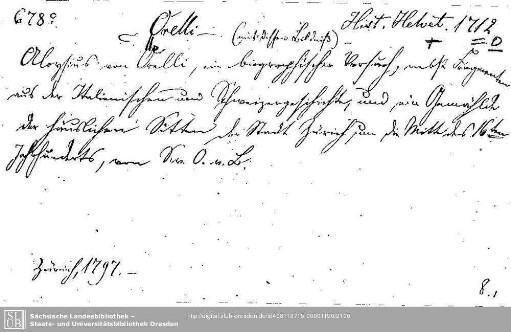 678. Orelli — (mit dessen Bildniß) Hist. Helvet. 1712
Aloysius von Orelli, ein biographischer Versuch, nebst Fragmenten
aus der Italienischen und Schweizergeschichte, und ein Gemählde
der häuslichen Sitten der Stadt Zürich, um die Mitte des 16ten
Jahrhunderts, von Sal. v. O. v. B.
Zürich, 1797. —
8.
Sächsische Landesbibliothek –
Staats- und Universitätsbibliothek Dresden